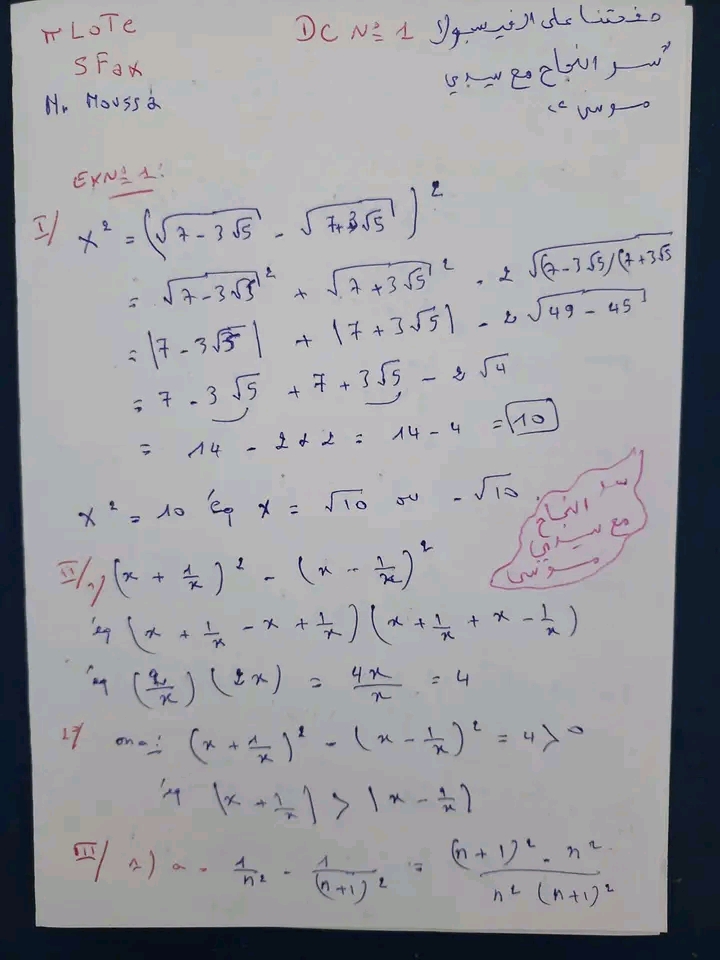 π LoTe
SFax
Mr Moussa
DC N° 1
صفحتنا على الفيسبوك
"سر النجاح مع سيدي
موسى"
EXN° 1:
I/ x² = (√(7 - 3√5) - √(7+3√5))²
= √(7-3√5)² + √(7+3√5)² - 2√((7-3√5)(7+3√5
= |7 - 3√5| + |7 + 3√5| - 2√(49 - 45)
= 7 - 3√5 + 7 + 3√5 - 2√4
= 14 - 2×2 = 14 - 4 = 10
x² = 10 éq x = √10 ou - √10.
سر
النجاح
مع سيدي
موسى
II/1) (x + 1/x)² - (x - 1/x)²
éq (x + 1/x - x + 1/x)(x + 1/x + x - 1/x)
éq (2/x)(2x) = 4x/x = 4
2/ on a: (x + 1/x)² - (x - 1/x)² = 4 > 0
éq |x + 1/x| > |x - 1/x|
III/ 1) a - 1/n² - 1/(n+1)² = ((n+1)² - n²)/(n² (n+1)²)